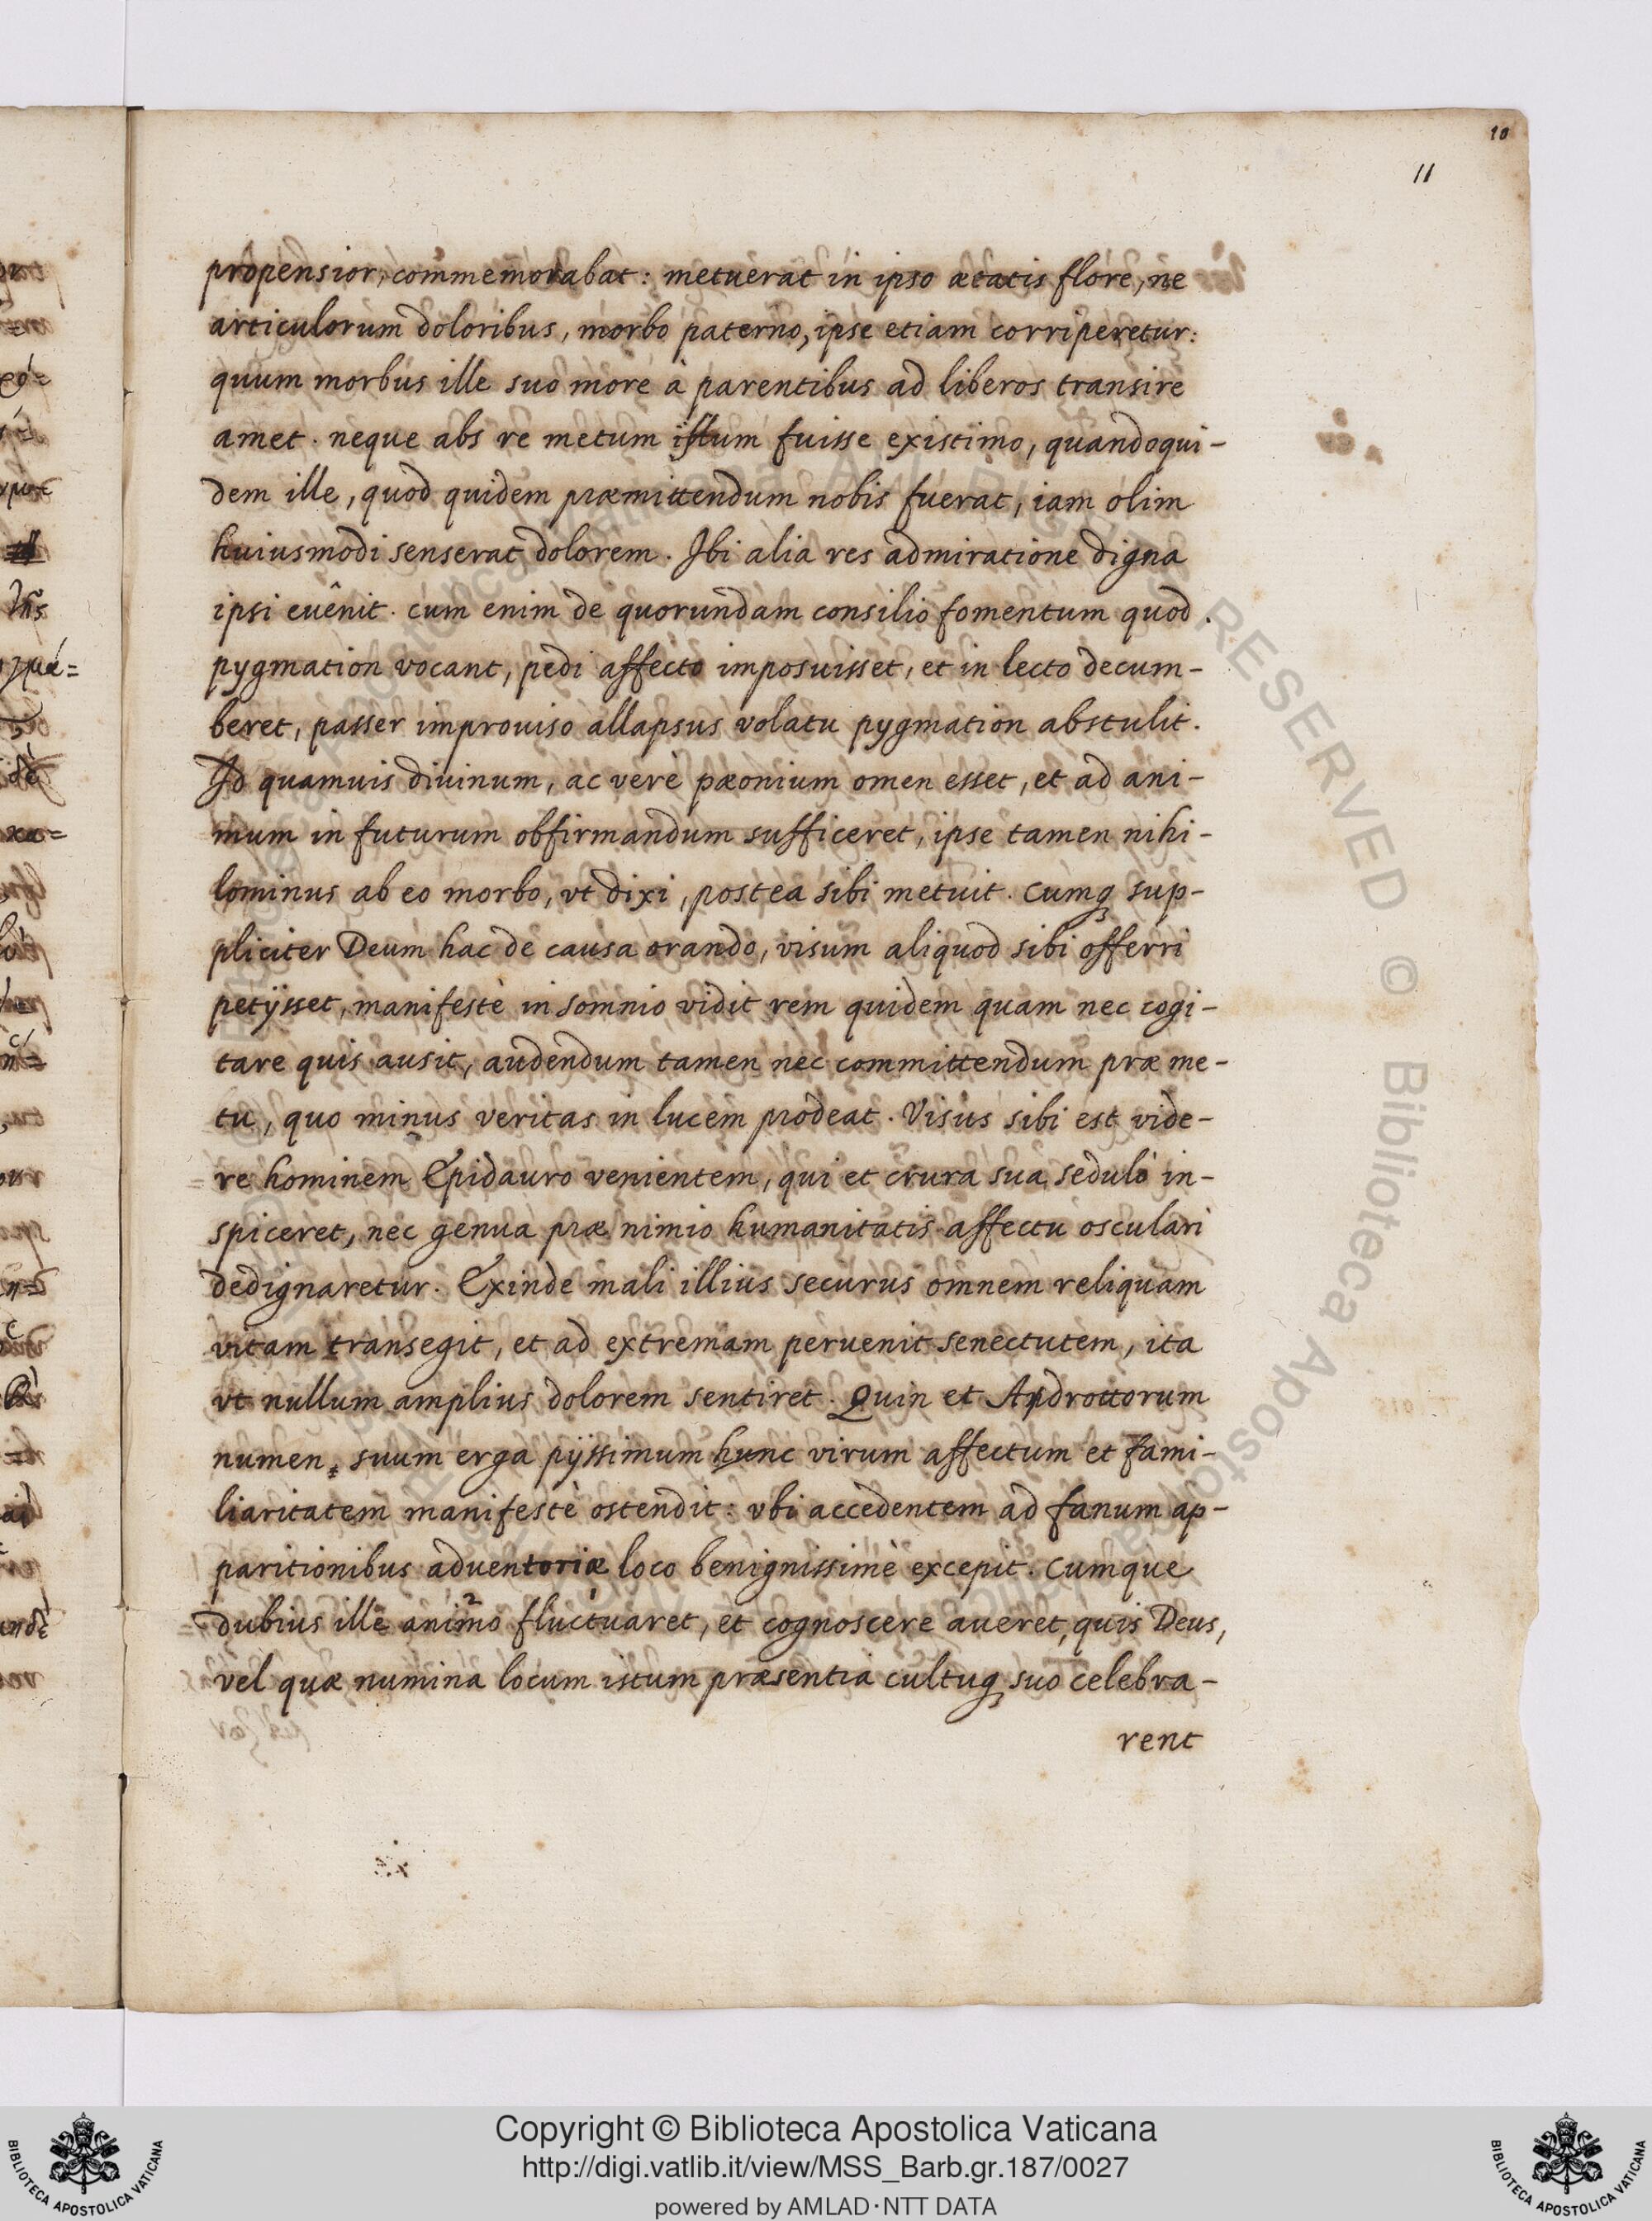 10
11
propensior, commemorabat: metuerat in ipso ætatis flore, ne
articulorum doloribus, morbo paterno, ipse etiam corriperetur:
quum morbus ille suo more à parentibus ad liberos transire
amet. neque abs re metum istum fuisse existimo, quandoqui-
dem ille, quod quidem præmittendum nobis fuerat, iam olim
huiusmodi senserat dolorem. Ibi alia res admiratione digna
ipsi euênit. cum enim de quorundam consilio fomentum quod
pygmation vocant, pedi affecto imposuisset, et in lecto decum-
beret, passer improuiso allapsus volatu pygmation abstulit.
Id quamuis diuinum, ac verè pæonium omen esset, et ad ani-
mum in futurum obfirmandum sufficeret, ipse tamen nihi-
lominus ab eo morbo, vt dixi, postea sibi metuit. cumq3 sup-
pliciter Deum hac de causa orando, visum aliquod sibi offerri
petijsset, manifestè in somnio vidit rem quidem quam nec cogi-
tare quis ausit, audendum tamen nec committendum præ me-
tu, quo minus veritas in lucem prodeat. Visus sibi est vide-
re hominem Epidauro venientem, qui et crura sua sedulò in-
spiceret, nec genua præ nimio humanitatis affectu osculari
dedignaretur. Exinde mali illius securus omnem reliquam
vitam transegit, et ad extremam peruenit senectutem, ita
vt nullum amplius dolorem sentiret. Quin et Apdrottorum
numen, suum erga pijssimum hunc virum affectum et fami-
liaritatem manifestè ostendit: vbi accedentem ad fanum ap-
paritionibus aduentoriæ loco benignissimè excepit. cumque
dubius ille animo fluctuaret, et cognoscere aueret, quis Deus,
vel quæ numina locum istum præsentia cultuq3 suo celebra-
rent
Copyright © Biblioteca Apostolica Vaticana
http://digi.vatlib.it/view/MSS_Barb.gr.187/0027
powered by AMLAD·NTT DATA
BIBLIOTECA APOSTOLICA VATICANA
BIBLIOTECA APOSTOLICA VATICANA